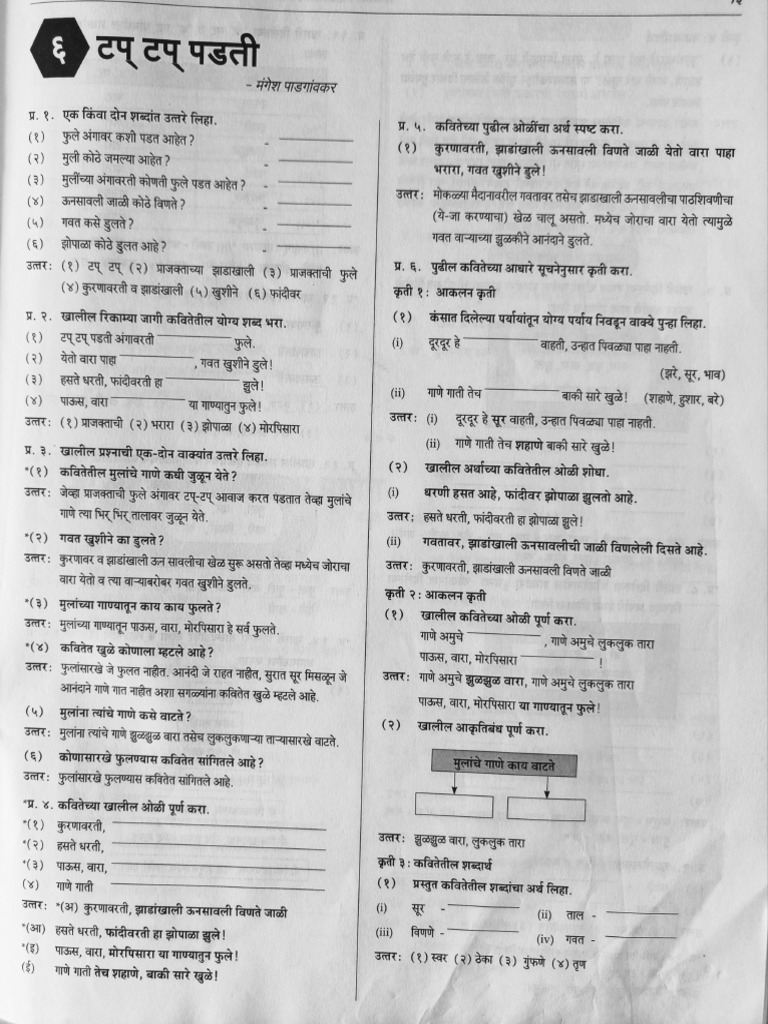 ६ टप् टप् पडती
- मंगेश पाडगांवकर
प्र. १. एक किंवा दोन शब्दांत उत्तरे लिहा.
(१) फुले अंगावर कशी पडत आहेत? -
(२) मुली कोठे जमल्या आहेत? -
(३) मुलींच्या अंगावरती कोणती फुले पडत आहेत? -
(४) ऊनसावली जाळी कोठे विणते? -
(५) गवत कसे डुलते? -
(६) झोपाळा कोठे डुलत आहे? -
उत्तर: (१) टप् टप् (२) प्राजक्ताच्या झाडांखाली (३) प्राजक्ताची फुले
(४) कुरणावरती व झाडांखाली (५) खुशीने (६) फांदीवर
प्र. २. खालील रिकाम्या जागी कवितेतील योग्य शब्द भरा.
(१) टप् टप् पडती अंगावरती फुले.
(२) येतो वारा पाहा , गवत खुशीने डुले!
(३) हसते धरती, फांदीवरती हा झुले!
(४) पाऊस, वारा या गाण्यातुन फुले!
उत्तर: (१) प्राजक्ताची (२) भरारा (३) झोपाळा (४) मोरपिसारा
प्र. ३. खालील प्रश्नाची एक-दोन वाक्यांत उत्तरे लिहा.
*(१) कवितेतील मुलांचे गाणे कधी जुळून येते?
उत्तर: जेव्हा प्राजक्ताची फुले अंगावर टप्-टप् आवाज करत पडतात तेव्हा मुलांचे
गाणे त्या भिर् भिर् तालावर जुळून येते.
*(२) गवत खुशीने का डुलते?
उत्तर: कुरणावर व झाडांखाली ऊन सावलीचा खेळ सुरू असतो तेव्हा मध्येच जोराचा
वारा येतो व त्या वाऱ्याबरोबर गवत खुशीने डुलते.
*(३) मुलांच्या गाण्यातून काय काय फुलते?
उत्तर: मुलांच्या गाण्यातून पाऊस, वारा, मोरपिसारा हे सर्व फुलते.
*(४) कवितेत खुळे कोणाला म्हटले आहे?
उत्तर: फुलांसारखे जे फुलत नाहीत. आनंदी जे राहत नाहीत, सुरात सूर मिसळून जे
आनंदाने गाणे गात नाहीत अशा सगळ्यांना कवितेत खुळे म्हटले आहे.
(५) मुलांना त्यांचे गाणे कसे वाटते?
उत्तर: मुलांना त्यांचे गाणे झुळझुळ वारा तसेच लुकलुकणाऱ्या ताऱ्यासारखे वाटते.
(६) कोणासारखे फुलण्यास कवितेत सांगितले आहे?
उत्तर: फुलांसारखे फुलण्यास कवितेत सांगितले आहे.
*प्र. ४. कवितेच्या खालील ओळी पूर्ण करा.
*(१) कुरणावरती,
*(२) हसते धरती,
*(३) पाऊस, वारा,
(४) गाणे गाती
उत्तर: *(अ) कुरणावरती, झाडांखाली ऊनसावली विणते जाळी
*(आ) हसते धरती, फांदीवरती हा झोपाळा झुले!
*(इ) पाऊस, वारा, मोरपिसारा या गाण्यातुन फुले!
(ई) गाणे गाती तेच शहाणे, बाकी सारे खुळे!
प्र. ५. कवितेच्या पुढील ओळींचा अर्थ स्पष्ट करा.
(१) कुरणावरती, झाडांखाली ऊनसावली विणते जाळी येतो वारा पाहा
भरारा, गवत खुशीने डुले!
उत्तर: मोकळ्या मैदानावरील गवतावर तसेच झाडाखाली ऊनसावलीचा पाठशिवणीचा
(ये-जा करण्याचा) खेळ चालू असतो. मध्येच जोराचा वारा येतो त्यामुळे
गवत वाऱ्याच्या झुळकीने आनंदाने डुलते.
प्र. ६. पुढील कवितेच्या आधारे सूचनेनुसार कृती करा.
कृती १: आकलन कृती
(१) कंसात दिलेल्या पर्यायांतून योग्य पर्याय निवडून वाक्ये पुन्हा लिहा.
(i) दूरदूर हे वाहती, उन्हात पिवळ्या पाहा नाहती.
(झरे, सूर, भाव)
(ii) गाणे गाती तेच बाकी सारे खुळे! (शहाणे, हुशार, बरे)
उत्तर: (i) दूरदूर हे सूर वाहती, उन्हात पिवळ्या पाहा नाहती.
(ii) गाणे गाती तेच शहाणे बाकी सारे खुळे!
(२) खालील अर्थाच्या कवितेतील ओळी शोधा.
(i) धरणी हसत आहे, फांदीवर झोपाळा झुलतो आहे.
उत्तर: हसते धरती, फांदीवरती हा झोपाळा झुले!
(ii) गवतावर, झाडांखाली ऊनसावलीची जाळी विणलेली दिसते आहे.
उत्तर: कुरणावरती, झाडांखाली ऊनसावली विणते जाळी
कृती २: आकलन कृती
(१) खालील कवितेच्या ओळी पूर्ण करा.
गाणे अमुचे , गाणे अमुचे लुकलुक तारा
पाऊस, वारा, मोरपिसारा !
उत्तर: गाणे अमुचे झुळझुळ वारा, गाणे अमुचे लुकलुक तारा
पाऊस, वारा, मोरपिसारा या गाण्यातून फुले!
(२) खालील आकृतिबंध पूर्ण करा.
मुलांचे गाणे काय वाटते
उत्तर: झुळझुळ वारा, लुकलुक तारा
कृती ३: कवितेतील शब्दार्थ
(१) प्रस्तुत कवितेतील शब्दांचा अर्थ लिहा.
(i) सूर - (ii) ताल -
(iii) विणणे - (iv) गवत -
उत्तर: (१) स्वर (२) ठेका (३) गुंफणे (४) तृण